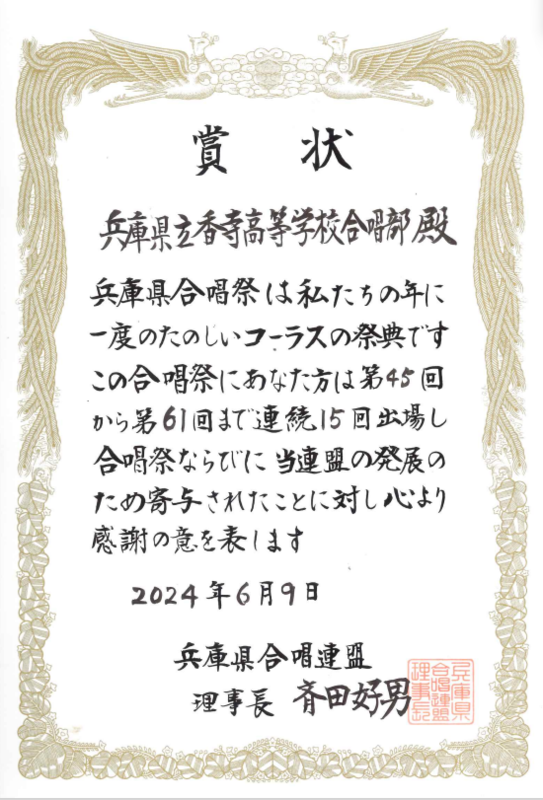 賞状
兵庫県立香寺高等学校合唱部 殿
兵庫県合唱祭は私たちの年に
一度のたのしいコーラスの祭典です
この合唱祭にあなた方は第45回
から第61回まで連続15回出場し
合唱祭ならびに当連盟の発展の
ため寄与されたことに対し心より
感謝の意を表します
2024年6月9日
兵庫県合唱連盟
理事長 斉田好男
兵庫県
合唱連盟
理事長印